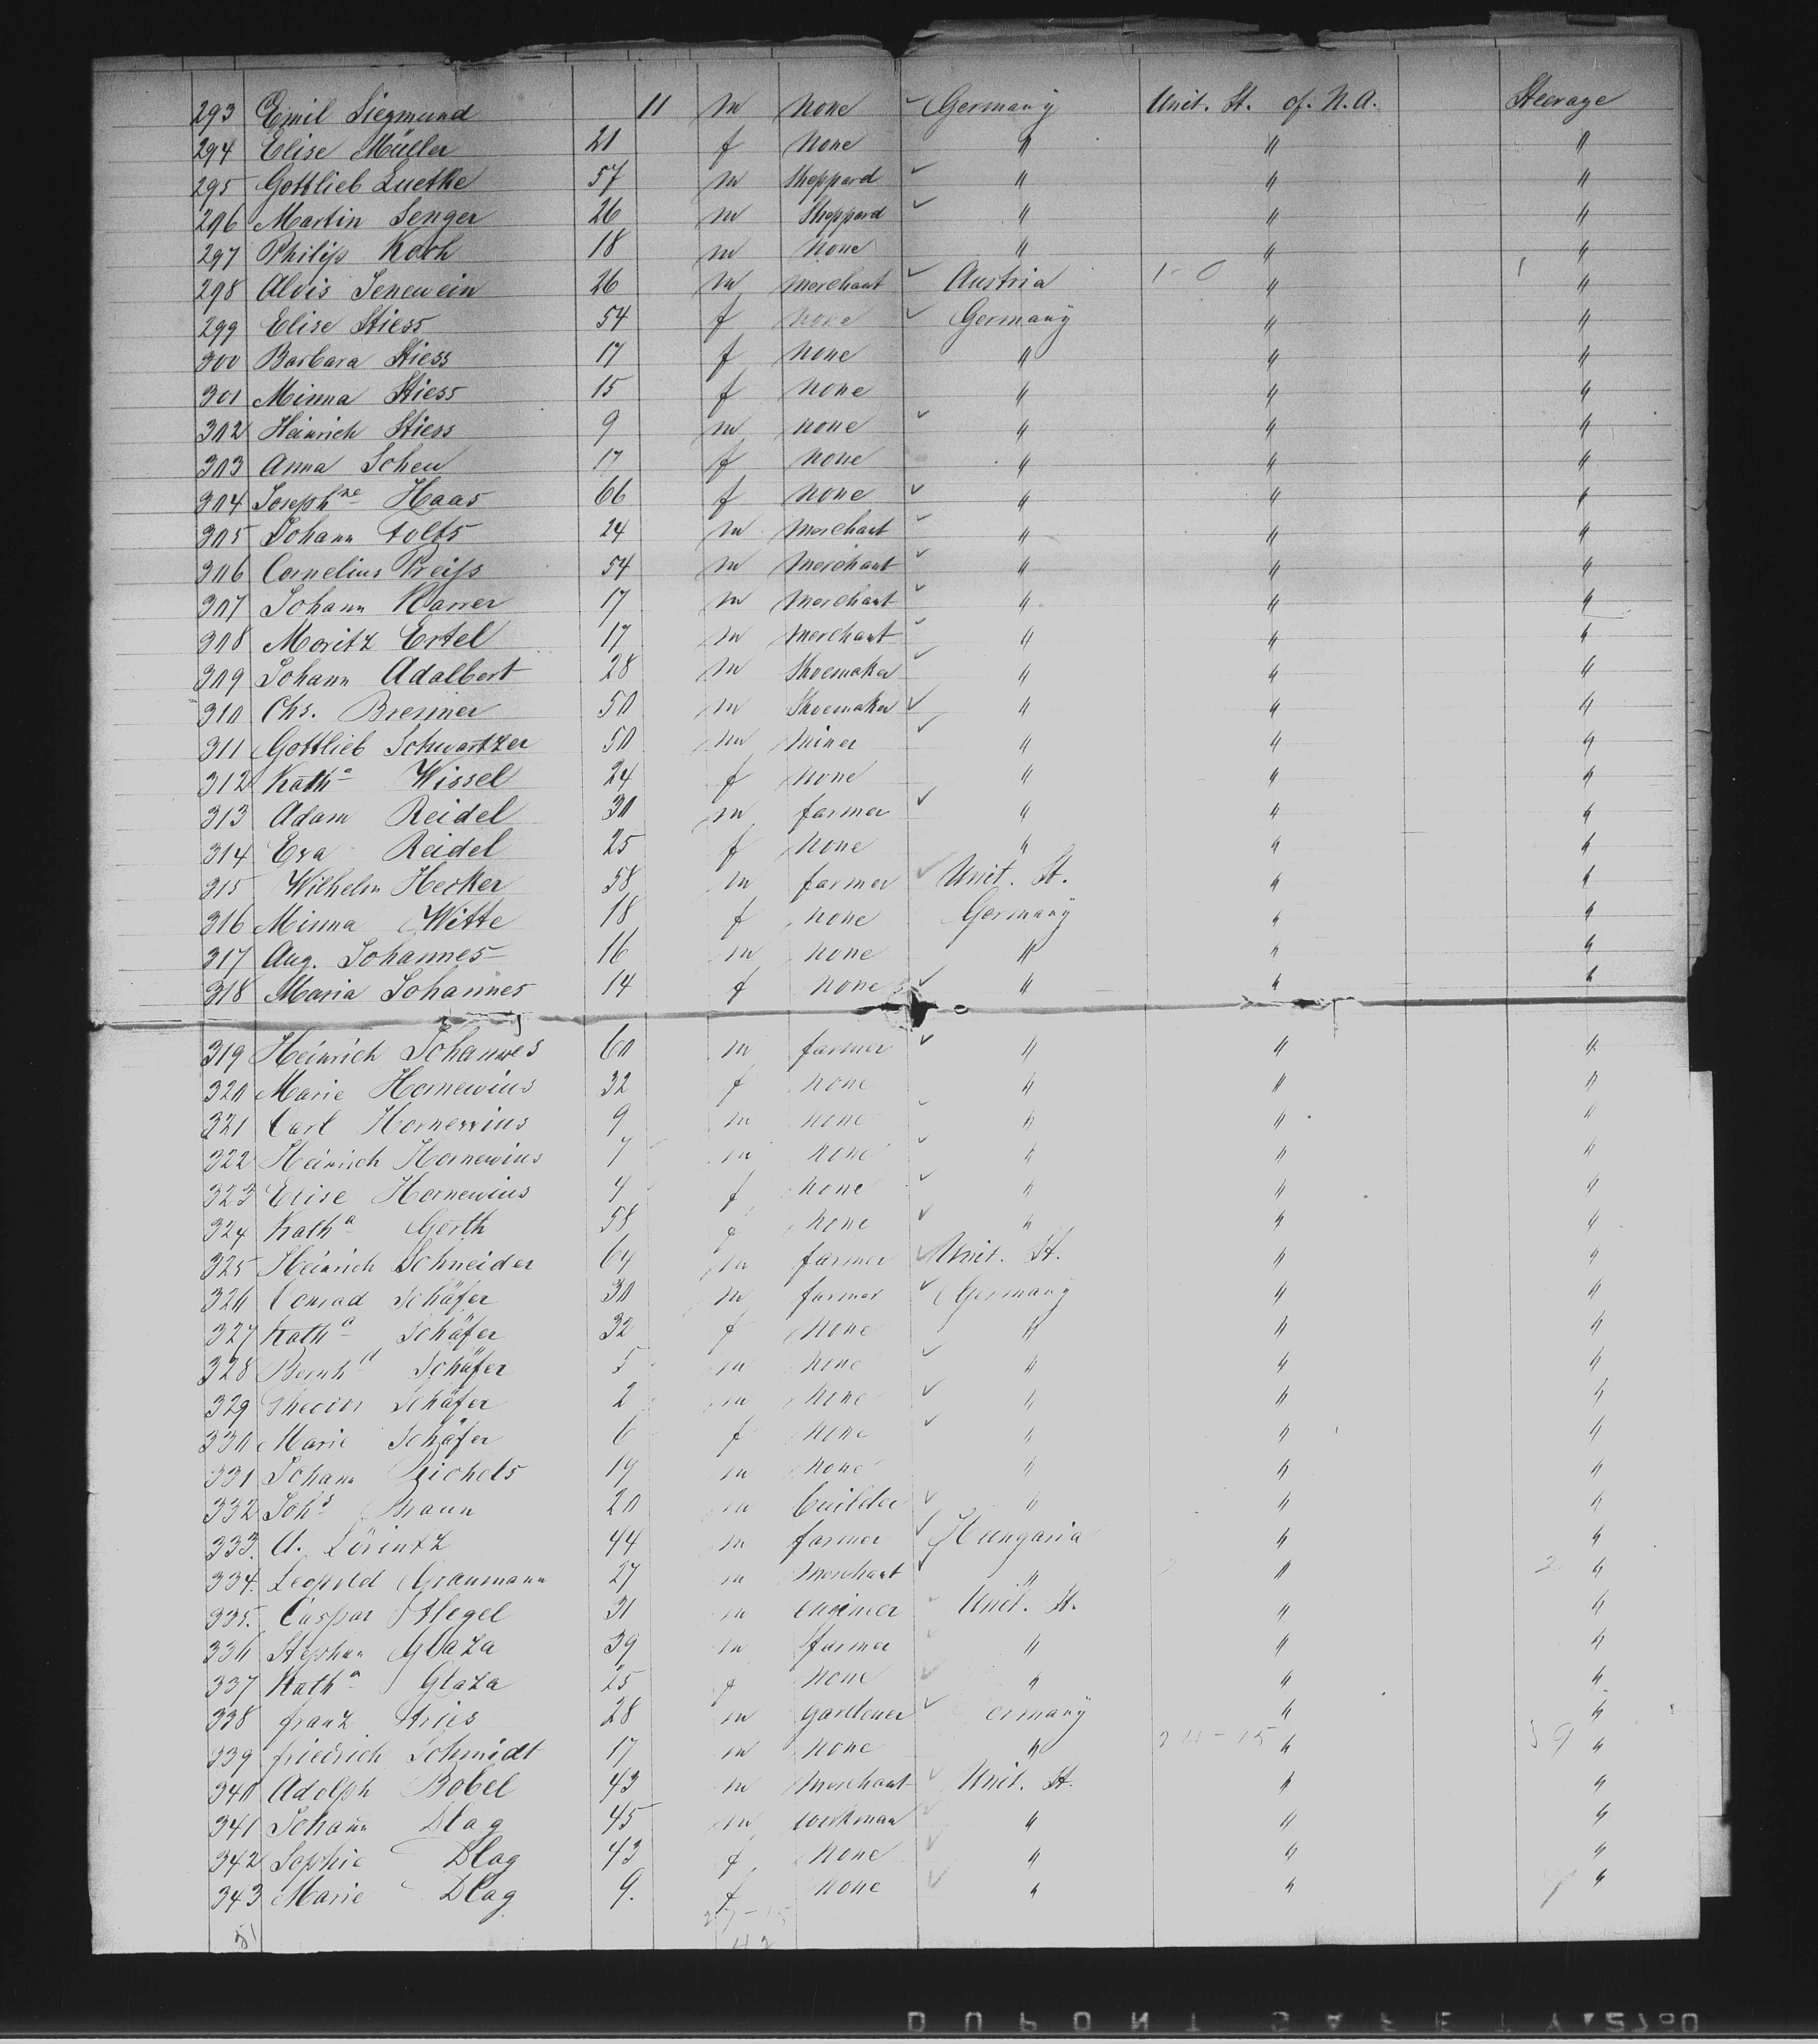 293 Emil Siegmund 11 m none Germany Unit. St. of. N. A. Steerage
294 Elise Müller 21 f none " " "
295 Gottlieb Luetke 57 m Sheppard " " "
296 Martin Senger 26 m Sheppard " " "
297 Philip Koch 18 m none " " "
298 Alois Jenewein 26 m merchant Austria " "
299 Elise Stiess 54 f none Germany " "
300 Barbara Stiess 17 f none " " "
301 Minna Stiess 15 f none " " "
302 Heinrich Stiess 9 m none " " "
303 Anna Scheu 17 f none " " "
304 Josephne Haas 66 f none " " "
305 Johann Folts 24 m merchant " " "
306 Cornelius Preiss 54 m merchant " " "
307 Johann Karrer 17 m merchant " " "
308 Moritz Ertel 17 m merchant " " "
309 Johann Adalbert 28 m Shoemaker " " "
310 Chs. Brenner 50 m Shoemaker " " "
311 Gottlieb Schwartzer 50 m miner " " "
312 Katha Wissel 24 f none " " "
313 Adam Reidel 30 m farmer " " "
314 Eva Reidel 25 f none " " "
315 Wilhelm Hecker 58 m farmer Unit. St. " "
316 Minna Witte 18 f none Germany " "
317 Aug. Johannes 16 m none " " "
318 Maria Johannes 14 f none " " "
319 Heinrich Johannes 60 m farmer " " "
320 Marie Hornewius 32 f none " " "
321 Carl Hornewius 9 m none " " "
322 Heinrich Hornewius 7 m none " " "
323 Elise Hornewius 4 f none " " "
324 Katha Gerth 58 f none " " "
325 Heinrich Schneider 64 m farmer Unit. St. " "
326 Conrad Schäfer 30 m farmer Germany " "
327 Katha Schäfer 32 f none " " "
328 Bernhd Schäfer 5 m none " " "
329 Theodor Schäfer 2 m none " " "
330 Marie Schäfer 6 f none " " "
331 Johann Reichels 19 m none " " "
332 Johs Braun 20 m builder " " "
333. A. Lörintz 44 m farmer Hungaria " "
334. Leopold Graumann 27 m merchant " " 2 "
335. Caspar Flegel 31 m engineer Unit. St. " "
336 Stephan Glaza 39 m farmer " " "
337 Katha Glaza 25 f none " " "
338 franz Fries 28 m gardener ermany " "
339 friedrich Schmidt 17 m none " "
340 Adolph Bobel 43 m merchant Unit. St. " "
341 Johann Dlag 45 m workman " " "
342 Sophie Dlag 43 f none " " "
343 Marie Dlag 9. f none " " "
51
DUPONT SAFETY